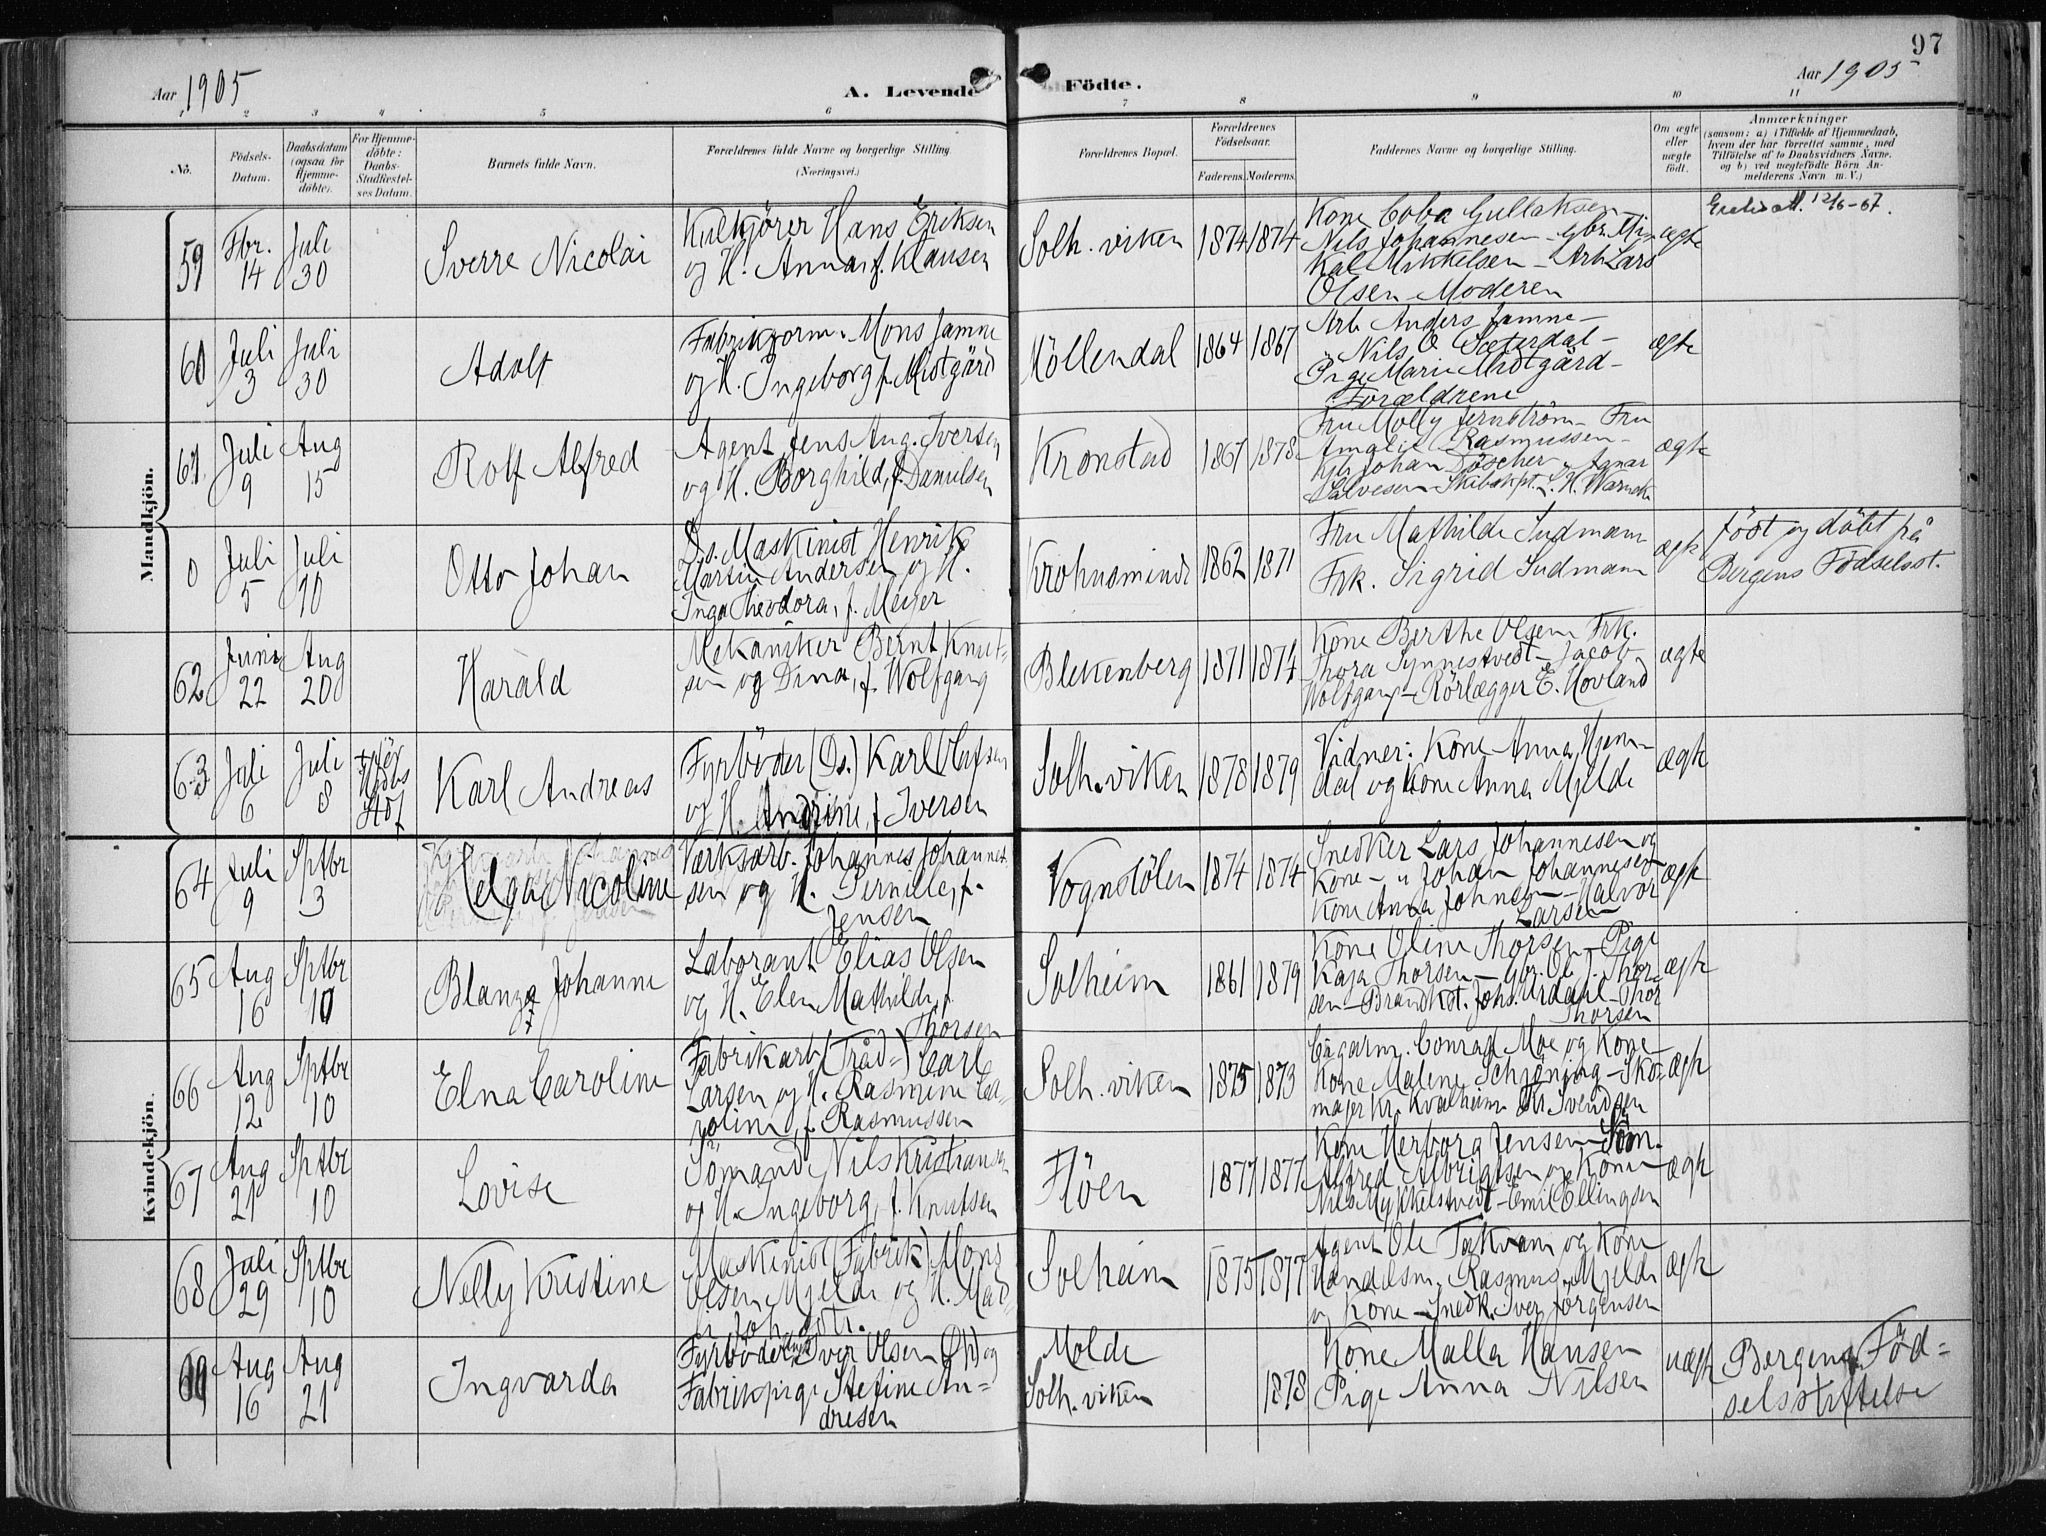 97
Aar 1905
A. Levende Födte.
Aar 1905
1 2 3 4 5 6 7 8 9 10 11
Nö.
Födsels-Datum.
Daabsdatum (ogsaa for Hjemmedöbte).
For Hjemmedöbte: Daabs-Stadfæstelses Datum.
Barnets fulde Navn.
Forældrenes fulde Navne og borgerlige Stilling (Næringsvei.)
Forældrenes Bopæl.
Forældrenes Födselsaar.
Faderens. Moderens.
Faddernes Navne og borgerlige Stilling.
Om ægte eller uægte födt.
Anmærkninger
(saasom: a) i Tilfælde af Hjemmedaab, hvem der har forrettet samme, med Tilföielse af to Daabsvidners Navne, og b) ved uægtefödte Börn Anmelderens Navn m. V.)
Mandkjön.
59 Fbr. 14 Juli 30
Sverre Nicolai
Kulkjörer Hans Eriksen
og H. Anna f. Klausen
Solh.viken 1874 1874
Kone Coba Gullaksen
Nils Johannesen - Gbr. Mi-
kal Mikkelsen - Arb Lars
Olsen - Moderen
ægte
12/6-67.
60 Juli 3 Juli 30
Adolf
Fabrikform. Mons Jamne
og H. Ingeborg f. Midtgård
Möllendal 1864 1867
Arb Anders Jamne -
Nils O Sæterdal -
Pige Marie Midtgård -
Forældrene
ægte
61 Juli 9 Aug 15
Rolf Alfred
Agent Jens Aug. Iversen
og H. Borghild, f. Danielsen
Kronstad 1867 1878
Fru Molly Jernström - Fru
Amalie Rasmussen -
Johan Döscher - Agnar
Salvesen - Skibskpt. L. H. Warncke
ægte
0 Juli 5 Juli 10
Otto Johan
Ds. Maskinist Henrik
Martin Andersen og H.
Inga Theodora, f. Meyer
Krohnsminde 1862 1871
Fru Mathilde Sudmann
Frk. Sigrid Sudmann
ægte
födt og döbt på
Bergens Födselsst.
62 Juni 22 Aug 20
Harald
Mekaniker Bernt Knut-
sen og Dina, f. Wolfgang
Blekenberg 1871 1874
Kone Berthe Olsen Frk.
Thora Synnestvedt - Jacob
Wolfgang - Rörlægger E. Hovland
ægte
63 Juli 6 Juli 8
Karl Andreas
Fyrböder (Ds.) Karl Olafsen
og H. Andrine, f Iversen
Solh.viken 1878 1879
Vidner: Kone Anna Hjem-
dal og Kone Anna Mjelde
ægte
Kvindekjön.
64 Juli 9 Sptbr 3
Helga Nicoline
Værksarb. Johannes Johannes-
sen og H. Pernille, f.
Jensen
Vognstölen 1874 1874
Snedker Lars Johannesen og
Kone - Johan Johannesen
Kone Anna Johnsen - Halvor
Larsen
ægte
65 Aug 16 Sptbr 10
Blanza Johanne
Laborant Elias Olsen
og H. Elen Mathilde, f.
Thorsen
Solheim 1861 1879
Kone Oline Thorsen - Pige
Kaja Thorsen - Gbr. Ole J. Thor-
sen - Brandkst. Johs. Urdahl - Thor
Thorsen
ægte
66 Aug 12 Sptbr 10
Elna Caroline
Fabrikarb (Tråd-) Carl
Larsen og H. Rasmine Ca-
roline, f Rasmussen
Solh.viken 1875 1873
Cigarm. Conrad Moe og Kone
Kone Malene Schjöning - Sko-
majer Kr. Kvalheim Kr. Svendsen
ægte
67 Aug 21 Sptbr 10
Lovise
Sömand Nils Kristiansen
og H. Ingeborg, f. Knutsen
Flöen 1877 1877
Kone Herborg Jensen Söm.
Alfred Albrigtsen og Kone
Nils Myhkelstvedt - Emil Ellingsen
ægte
68 Juli 29 Sptbr 10
Nelly Kristine
Maskinist (Fabrik) Mons
Olsen Mjelde og H. Mad-
Solheim 1875 1877
Agent Ole Takvam og Kone
Handelsm. Rasmus Mjelde
og Kone - Snedk. Iver Jörgensen
ægte
69 Aug 16 Aug 21
Ingvarda
Fyrböder Iver Olsen og
Fabrikpige Stefine An-
dresen
Molde
Solh.viken 1878
Kone Malla Hansen
Pige Anna Nilsen
uægte
Bergens Föd-
selsstiftelse